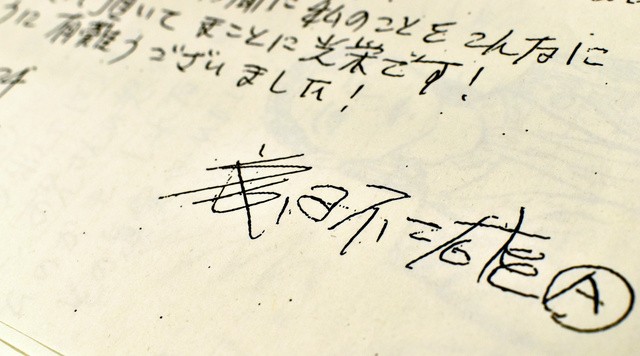 に 私のことを こんなに
頂いて まことに 光栄です!
うに 有難うございました!
藤子不二雄Ⓐ